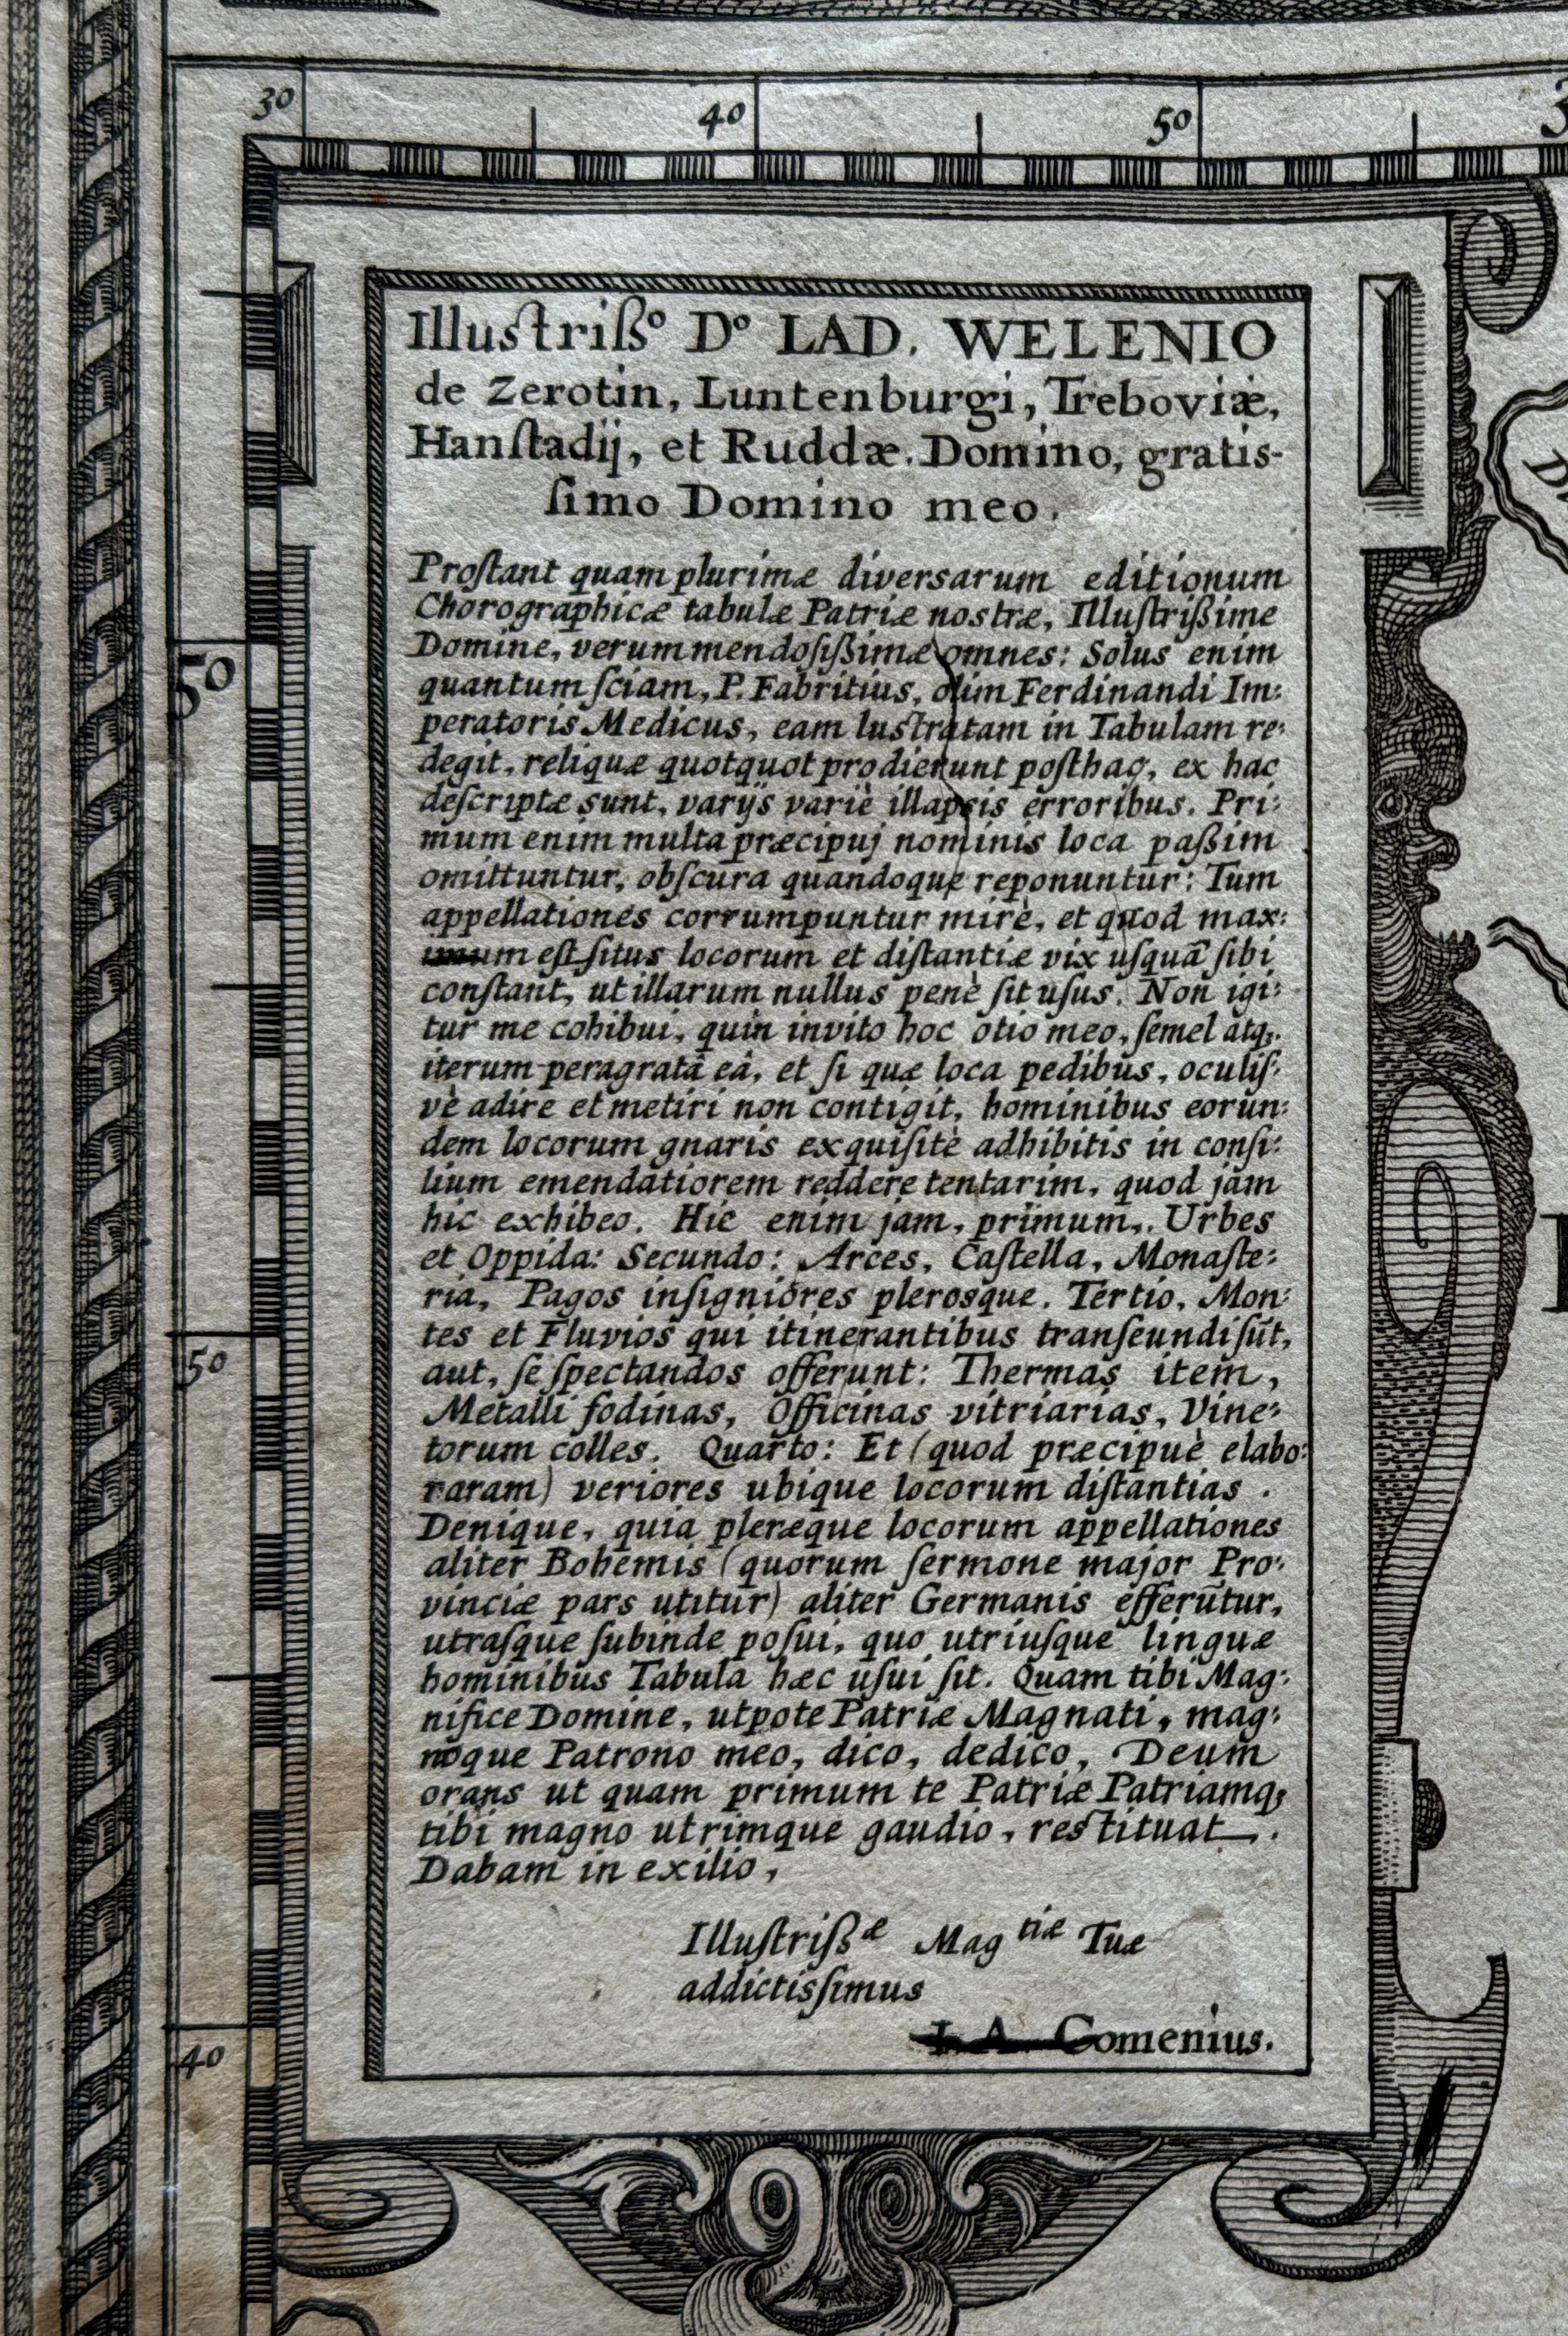 30
40
50
Illustriſsº Dº LAD. WELENIO
de Zerotin, Luntenburgi, Treboviæ,
Hanſtadij, et Ruddæ. Domino, gratis-
ſimo Domino meo.
Proſtant quam plurimæ diversarum editionum
Chorographicæ tabulæ Patriæ nostræ, Illuſtriſsime
Domine, verum mendoſiſsimæ omnes: Solus enim
quantum ſciam, P. Fabritius, olim Ferdinandi Im:
peratoris Medicus, eam lustratam in Tabulam re:
degit, reliquæ quotquot prodierunt poſthac, ex hac
deſcriptæ sunt, varijs variè illapsis erroribus. Pri:
mum enim multa præcipuj nominis loca paſsim
omittuntur, obſcura quandoque reponuntur: Tum
appellationes corrumpuntur mirè, et quod max:
imum eſt ſitus locorum et diſtantiæ vix uſquā ſibi
conſtant, ut illarum nullus penè ſit uſus. Non igi:
tur me cohibui, quin invito hoc otio meo, ſemel atq;
iterum peragratâ eâ, et ſi quæ loca pedibus, oculiſ:
vè adire et metiri non contigit, hominibus eorun:
dem locorum gnaris exquiſitè adhibitis in conſi:
lium emendatiorem reddere tentarim, quod jam
hic exhibeo. Hic enim jam, primum,. Urbes
et Oppida: Secundo: Arces, Caſtella, Monaſte:
ria, Pagos inſigniores plerosque. Tertio, Mon:
tes et Fluvios qui itinerantibus tranſeundi ſūt,
aut, ſe ſpectandos offerunt: Thermas item,
Metalli fodinas, Officinas vitriarias, Vine:
torum colles. Quarto: Et (quod præcipuè elabo:
raram) veriores ubique locorum diſtantias.
Denique, quia pleræque locorum appellationes
aliter Bohemis (quorum ſermone major Pro:
vinciæ pars utitur) aliter Germanis efferūtur,
utraſque ſubinde poſui, quo utriuſque linguæ
hominibus Tabula hæc uſui ſit. Quam tibi Mag:
nifice Domine, utpote Patriæ Magnati, mag:
noque Patrono meo, dico, dedico, Deum
orans ut quam primum te Patriæ Patriamq;
tibi magno utrimque gaudio, restituat.
Dabam in exilio,
Illuſtriſsæ Mag tiæ Tuæ
addictisſimus
I. A. Comenius.
50
50
40